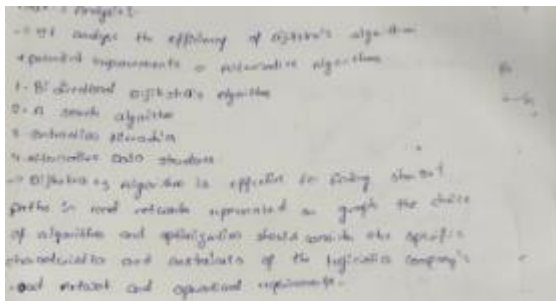 Analysis:
-> It analyze the efficiency of Dijkstra's algorithm
* potential improvements or alternative algorithms
1. Bidirectional Dijkstra's algorithm
2. A search algorithm
3. contraction Hierarchies
4. Alternative Data structures
-> Dijkstra's algorithm is effective for finding shortest
paths in road networks represented as graph the choice
of algorithm and optimization should consider the specific
characteristics and constraints of the logistics company's
road network and operational requirements.